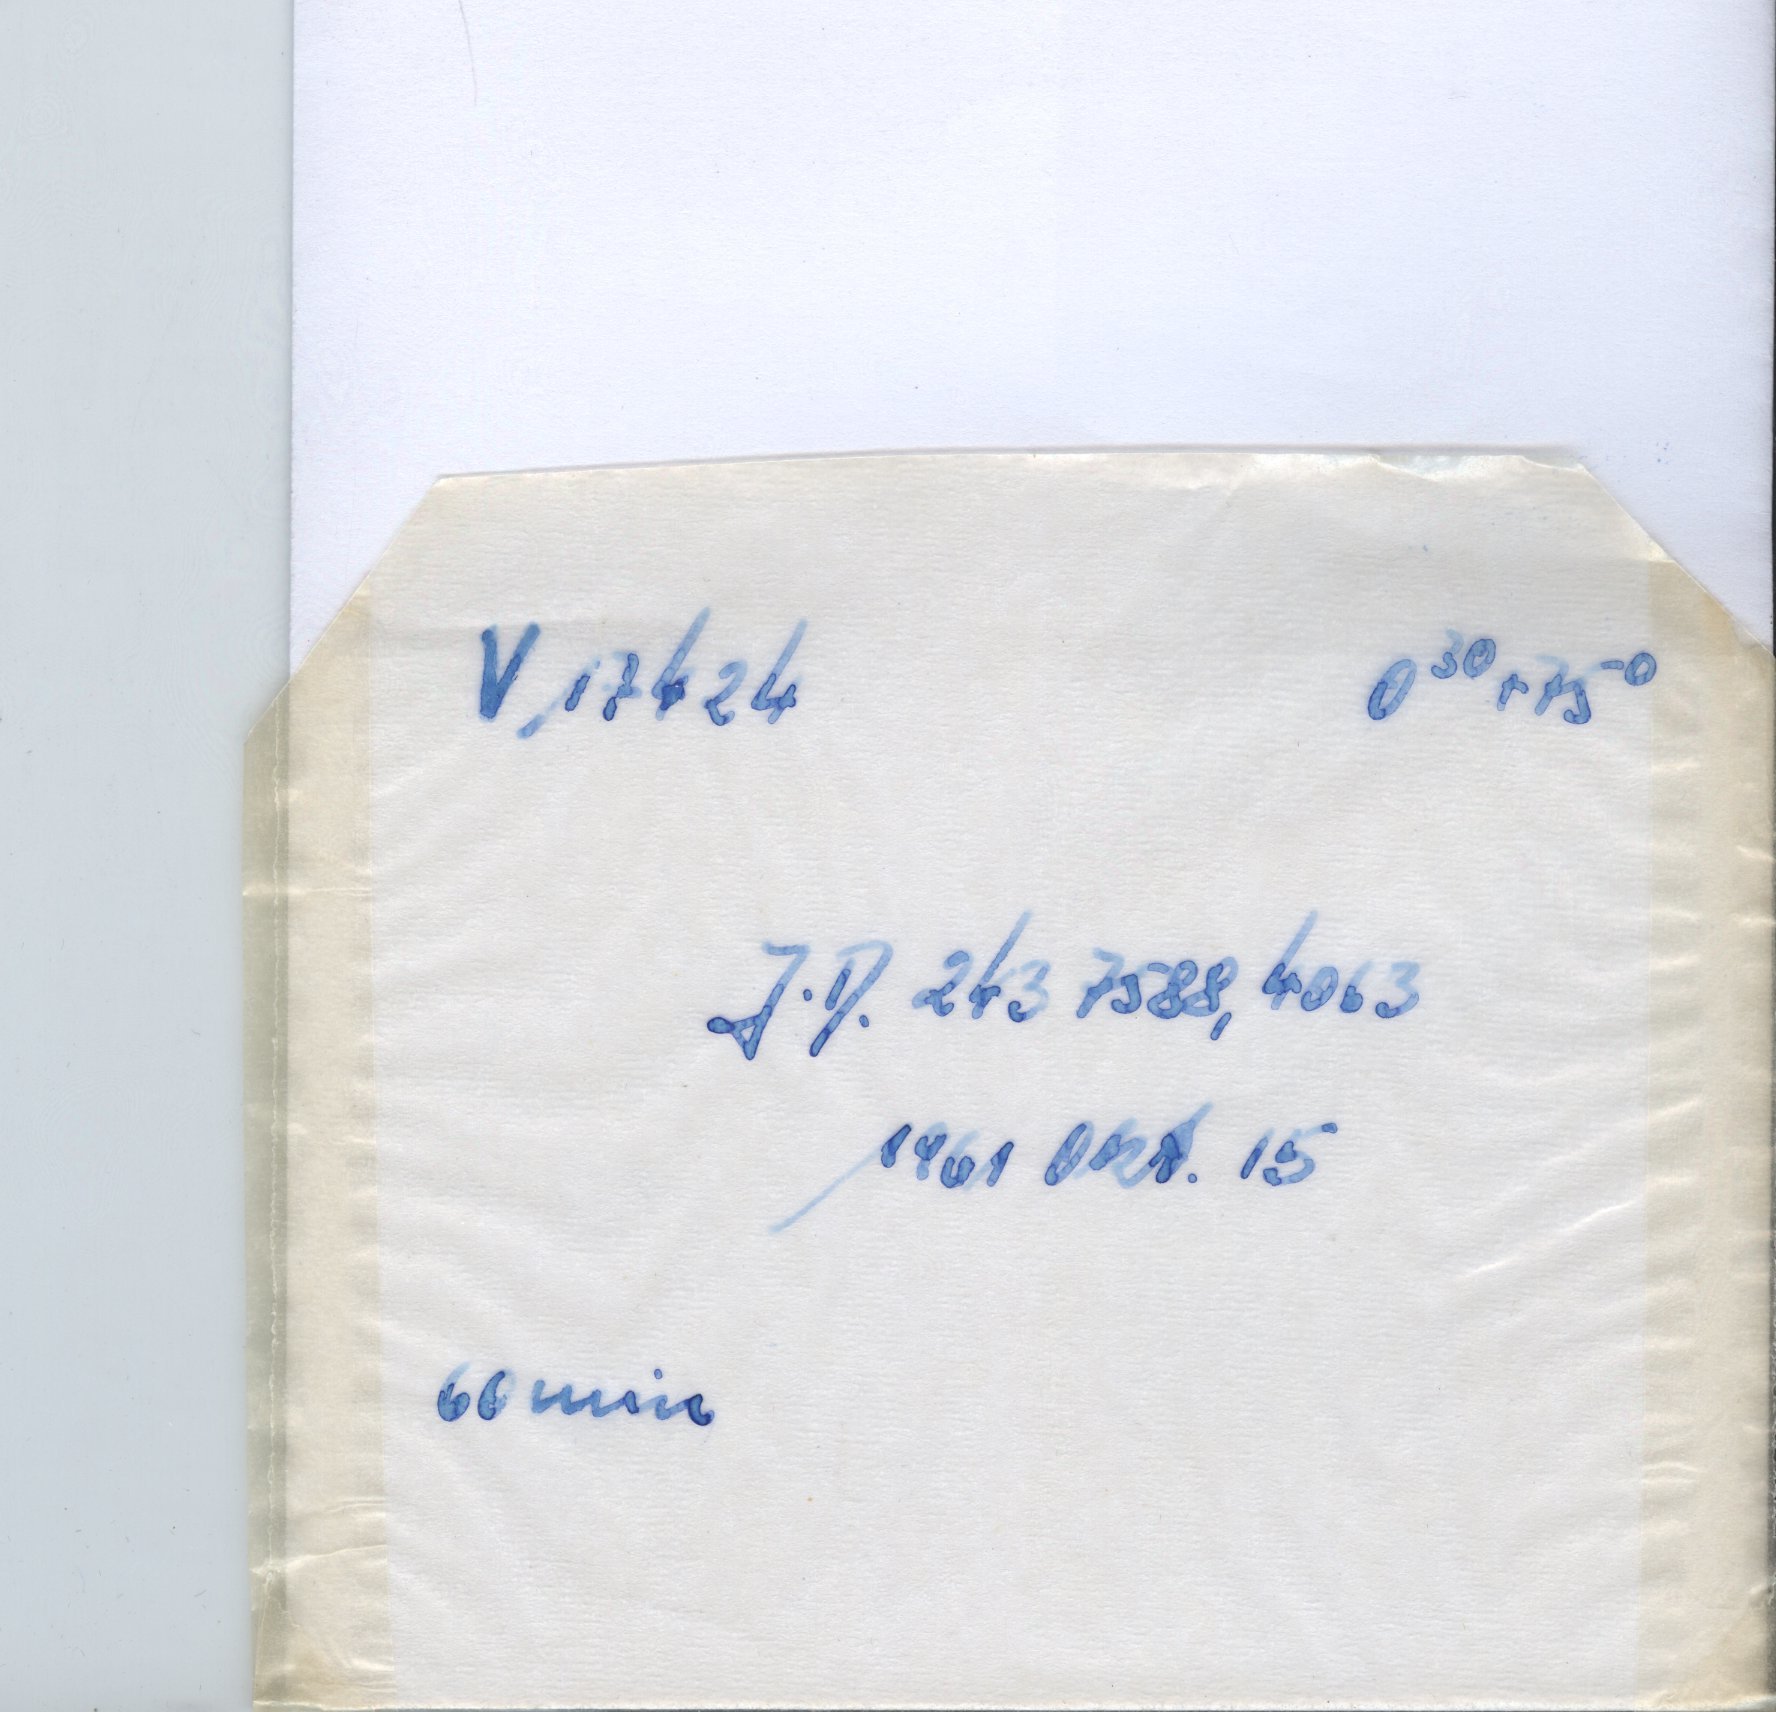 V 17424
0³⁰ +75⁻⁰
J.D. 243 7588,4063
1961 Okt. 15
60 min